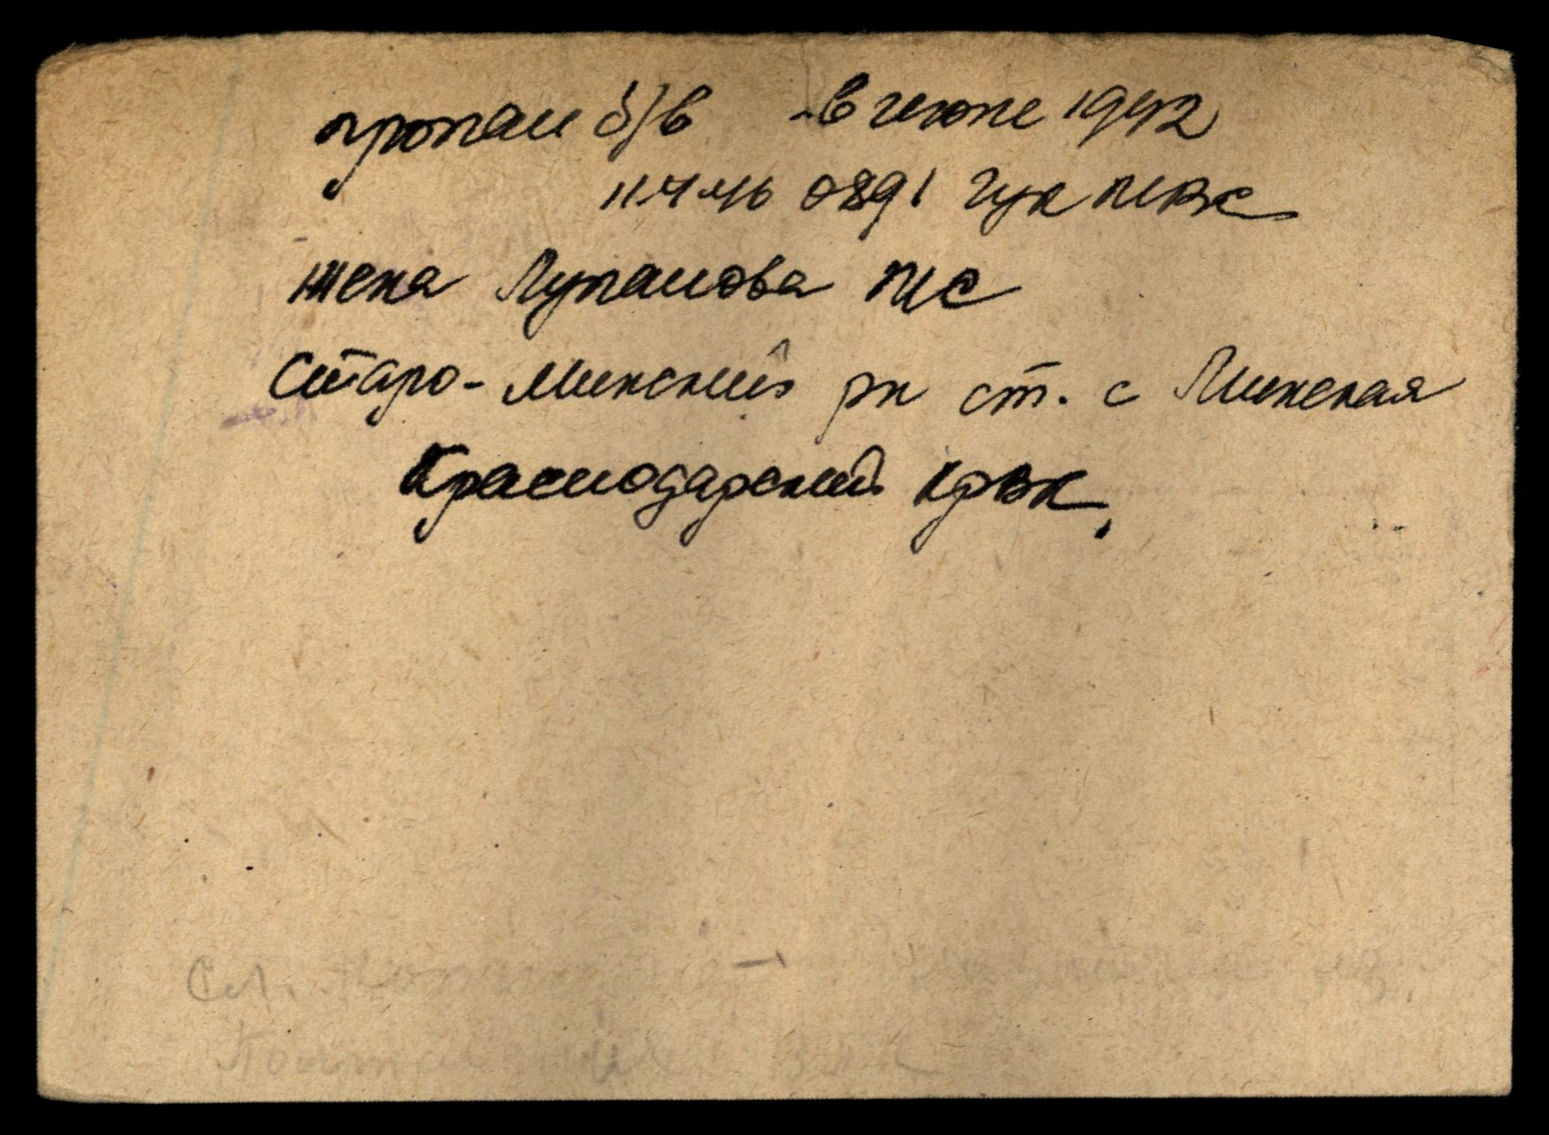 пропал б/в - в июне 1942
11.4.46 0891 Гук
жена Лупалова ПС
Старо-Минский рн ст. с Минская
Краснодарский край,
См.